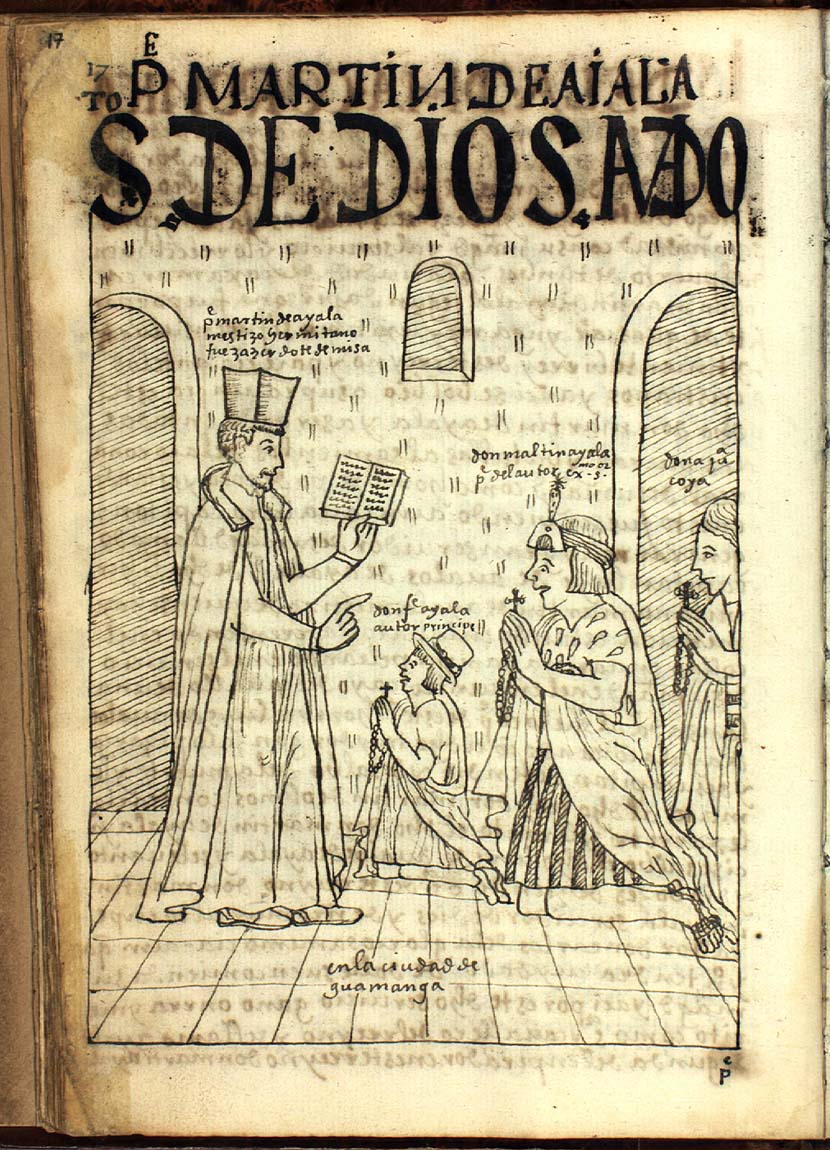 17
17
P^E MARTIN DE AIALA
S.TO DE DIOS AMADO
p^e martin de ayala
mestizo hermitano
fue zazerdote de misa
don maltin ayala
p^e del autor ex^mo or s.
dona ju^a
coya
don f^e ayala
autor principe
en la ciudad de
guamanga
p^e